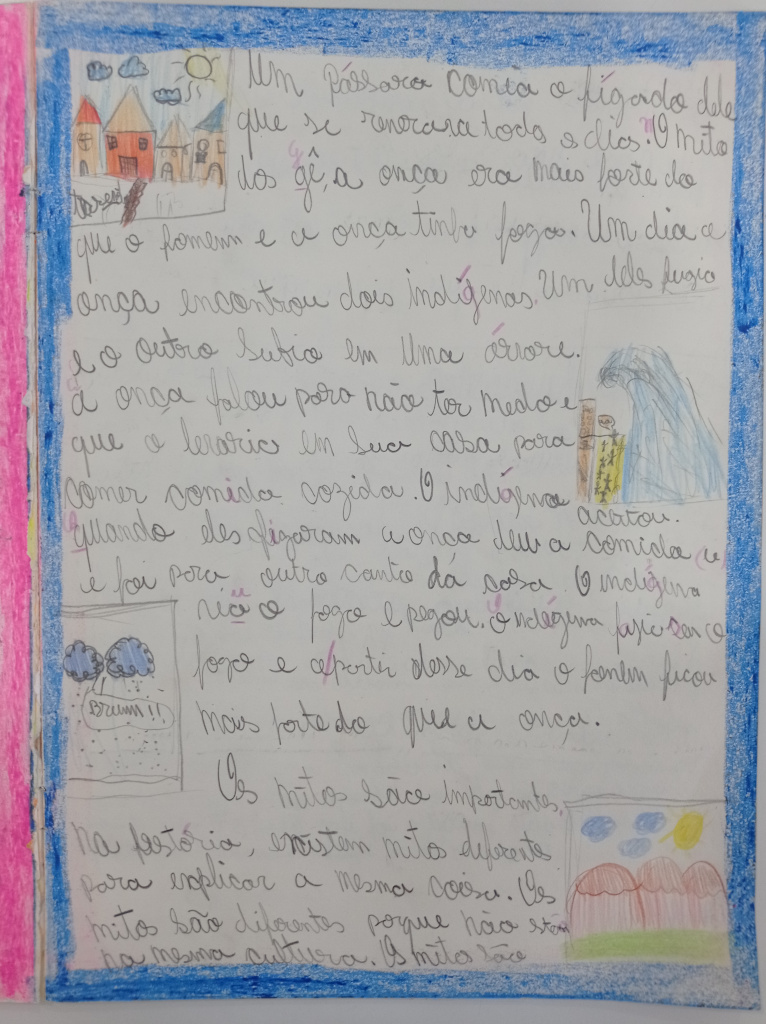 Um pássaro comia o fígado dele
que se renovava todo o dia. O mito
dos gê, a onça era mais forte do
que o homem e a onça tinha fogo. Um dia a
onça encontrou dois indígenas. Um deles fugio
e o outro subio em uma árvore.
a onça falou para não ter medo e
que o levaria em sua casa para
comer comida cozida. O indígena
aceitou.
quando eles figaram a onça deu a comida
e foi para outro canto da casa. O indígena
viu o fogo e pegou. O indígena fugio com o
fogo e apartir desse dia o homem ficou
mais forte do que a onça.
Brumm!!
Os mitos são importantes,
na história, existem mitos diferentes
para explicar a mesma coisa. Os
mitos são diferentes porque não stão
na mesma cultura. Os mitos são